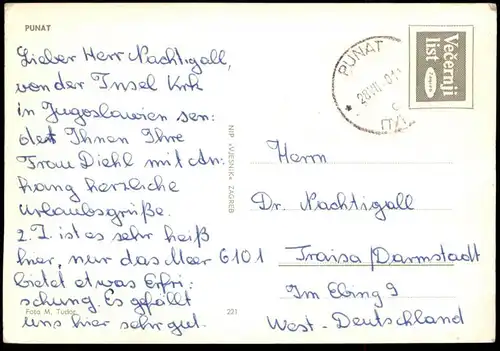 PUNAT
Lieber Herr Nachtigall,
von der Insel Krk
in Jugoslawien sen:
det Ihnen Ihre
Frau Diehl mit An:
hang herzliche
Urlaubsgrüße.
Z.Z. ist es sehr heiß
hier, nur das Meer
bietet etwas Erfri:
schung. Es gefällt
uns hier sehr gut.
Foto M. Tudor
221
NIP »VJESNIK« ZAGREB
PUNAT
Večernji
list
Herrn
Dr. Nachtigall
6101 Traisa/Darmstadt
Im Ebing 9
West-Deutschland